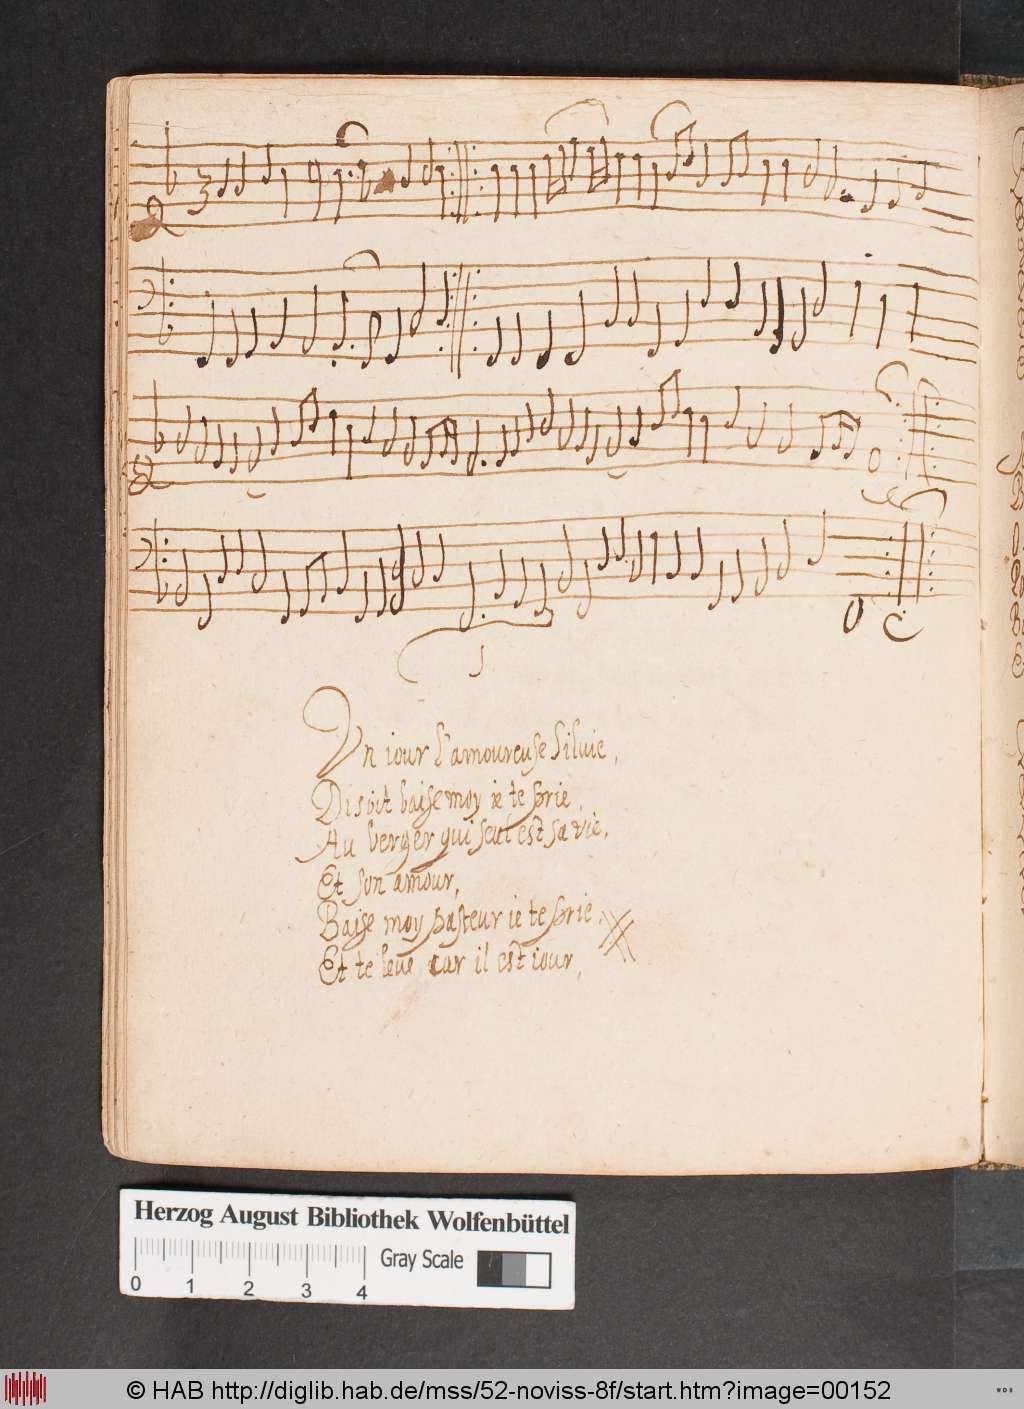 Un iour l'amoureuse Siluie,
Disoit baise moy ie te prie,
Au berger qui seul est sa vie,
Et son amour,
Baise moy pasteur ie te prie,
Et te leue car il est iour,
Herzog August Bibliothek Wolfenbüttel
Gray Scale
0 1 2 3 4
© HAB http://diglib.hab.de/mss/52-noviss-8f/start.htm?image=00152